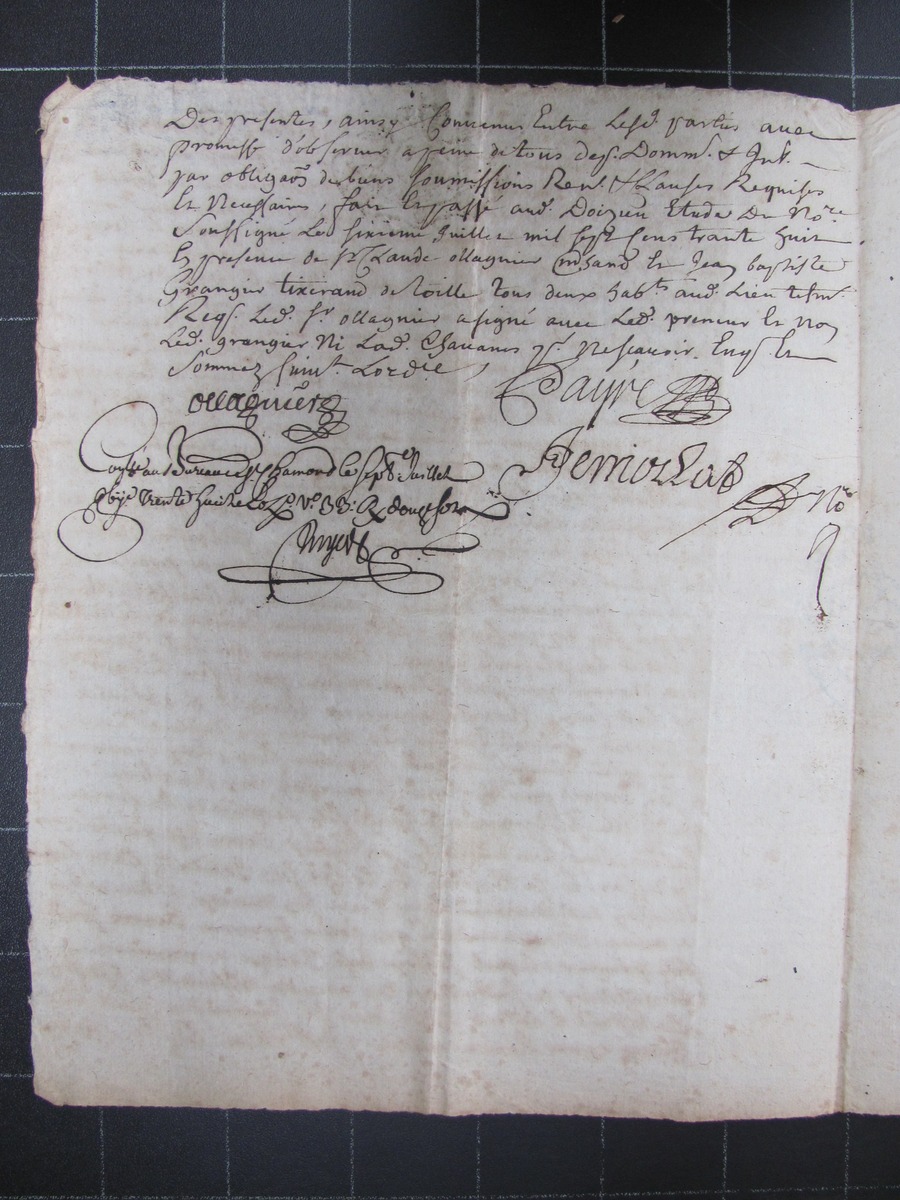 Des presentes, ainsy Convenus Entre Lesd. parties avec
promesse d'observer a peine de tous desp. Domm. & Int.
par obligaõn de biens Soumissions Ren. & Clauses Requises
Et Necessaires, fait Et passé aud. Doizieu Etude Du No.re
Soussigné Led sixieme Juillet mil sept Cens trante huit
En presence de Sr. Claude ollagnier mhand Et Jean baptiste
Grangier tixerand de toille tous deux hab.ts aud. Lieu tesm.
Reqs. Led. Sr. ollagnier a signé avec Led. preneur Et Non
Led. grangier Ni Lad. Chavanes pr. Ne scavoir Enq. Et
Sommez suiv.t Lord.ce
ollagnier Payre
Con.lé au Bureau de St. Chamond le sept.e Juillet
trente huit Reçu douze sols
No.re